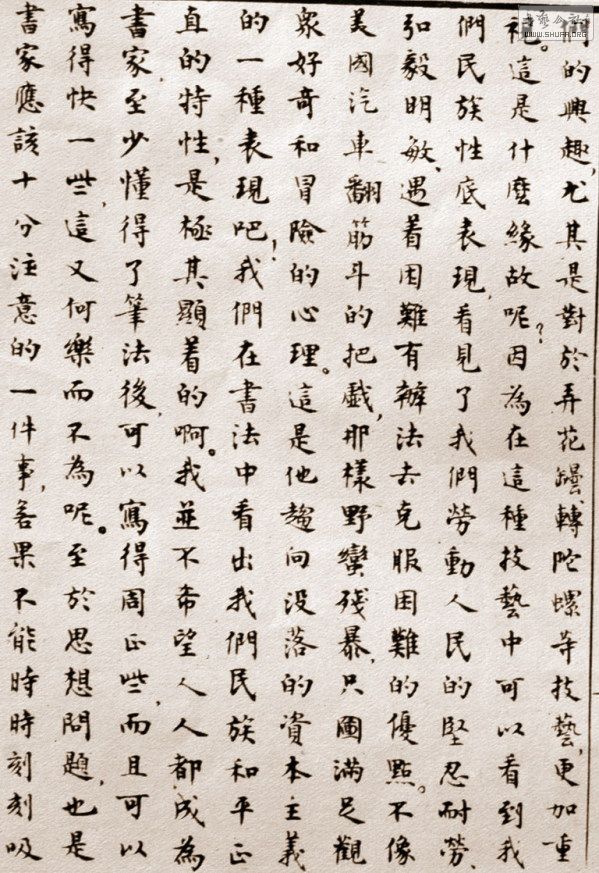 們的興趣,尤其是對於弄花罎、轉陀螺等技藝,更加重
視。這是什麼緣故呢?因為在這種技藝中可以看到我
們民族性底表現,看見了我們勞動人民的堅忍耐勞、
弘毅明敏、遇着困難有辦法去克服困難的優點。不像
美國汽車翻筋斗的把戲,那樣野蠻殘暴,只圖滿足觀
衆好奇和冒險的心理。這是他趨向没落的資本主義
的一種表現吧!我們在書法中看出我們民族和平正
直的特性,是極其顯着的啊。我並不希望人人都成為
書家,至少懂得了筆法後,可以寫得周正些,而且可以
寫得快一些,這又何樂而不為呢。至於思想問題,也是
書家應該十分注意的一件事,若果不能時時刻刻吸
WWW.SHUFA.ORG